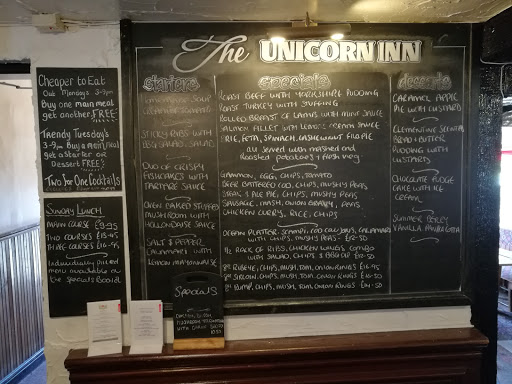 The UNICORN INN
CHEAPER TO EAT
OUR MONDAYS 3-9pm
BUY ONE MAIN MEAL
GET ANOTHER FREE
TRENDY TUESDAY'S
3-9pm BUY A MAIN MEAL
GET A STARTER OR
DESSERT FREE
TWO FOR ONE COCKTAILS
SUNDAY LUNCH
MAIN COURSE £9.95
TWO COURSES
THREE COURSES
INDIVIDUALLY PRICED
MENU AVAILABLE ON
THE SPECIALS BOARD
starters
SOUP
CRUSTY BREAD
STICKY RIBS WITH
BBQ SALAD
DUO OF CRISPY
FISHCAKES WITH
TARTARE SAUCE
OVEN BAKED STUFFED
MUSHROOM WITH
HOLLONDAISE SAUCE
SALT & PEPPER
CALAMARI WITH
LEMON MAYONNAISE
specials
ROAST BEEF WITH YORKSHIRE PUDDING
ROAST TURKEY WITH STUFFING
ROLLED BREAST OF LAMB WITH MINT SAUCE
SALMON FILLET WITH LEMON & CREAM SAUCE
FETA, SPINACH, CASHEWNUT FILO PIE
All served with mashed and
Roasted potatoes & fresh veg
GAMMON, EGGS, CHIPS, TOMATO
BEER BATTERED COD, CHIPS, MUSHY PEAS
STEAK & ALE PIE, CHIPS, MUSHY PEAS
SAUSAGE, MASH, ONION GRAVY, PEAS
CHICKEN CURRY, RICE, CHIPS
OCEAN PLATTER. SCAMPI, COD GOUJONS, CALAMARI
WITH CHIPS, MUSHY PEAS
½ RACK OF RIBS, CHICKEN WINGS, COMBO
WITH SALAD, CHIPS & BBQ DIP
8oz RIBEYE, CHIPS, MUSH, TOM, ONION RINGS
8oz SIRLOIN, CHIPS, MUSH, TOM, ONION RINGS
RUMP, CHIPS, MUSH, TOM, ONION RINGS
desserts
CARAMEL APPLE
PIE WITH CUSTARD
CLEMENTINE
BREAD + BUTTER
PUDDING WITH
CUSTARD
CHOCOLATE FUDGE
CAKE WITH ICE
CREAM
SUMMER BERRY
VANILLA PANNA COTTA
SPECIALS
MUSHROOM
WITH